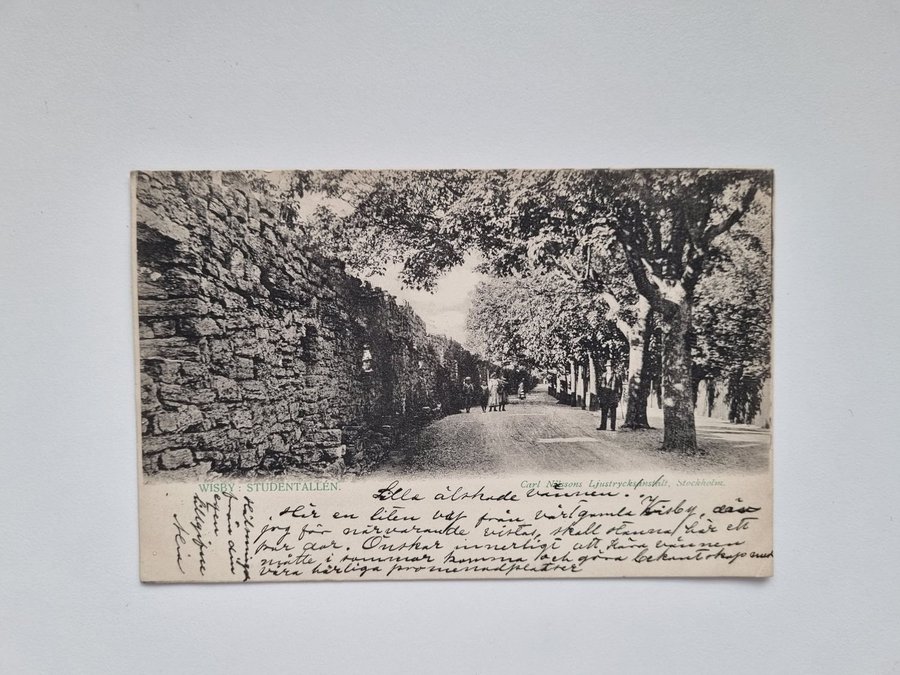 WISBY: STUDENTALLÉN.
Carl Nilssons Ljustrycksanstalt, Stockholm.
Lilla älskade vännen.
Här en liten vy från vårt gamla Wisby, där
jag för närvarande vistas, skall stanna här ett
par dar. Önskar innerligt att kära vännen
måtte i sommar komma och göra bekantskap med
våra härliga promenadplatser
Helsningar
från din
egen